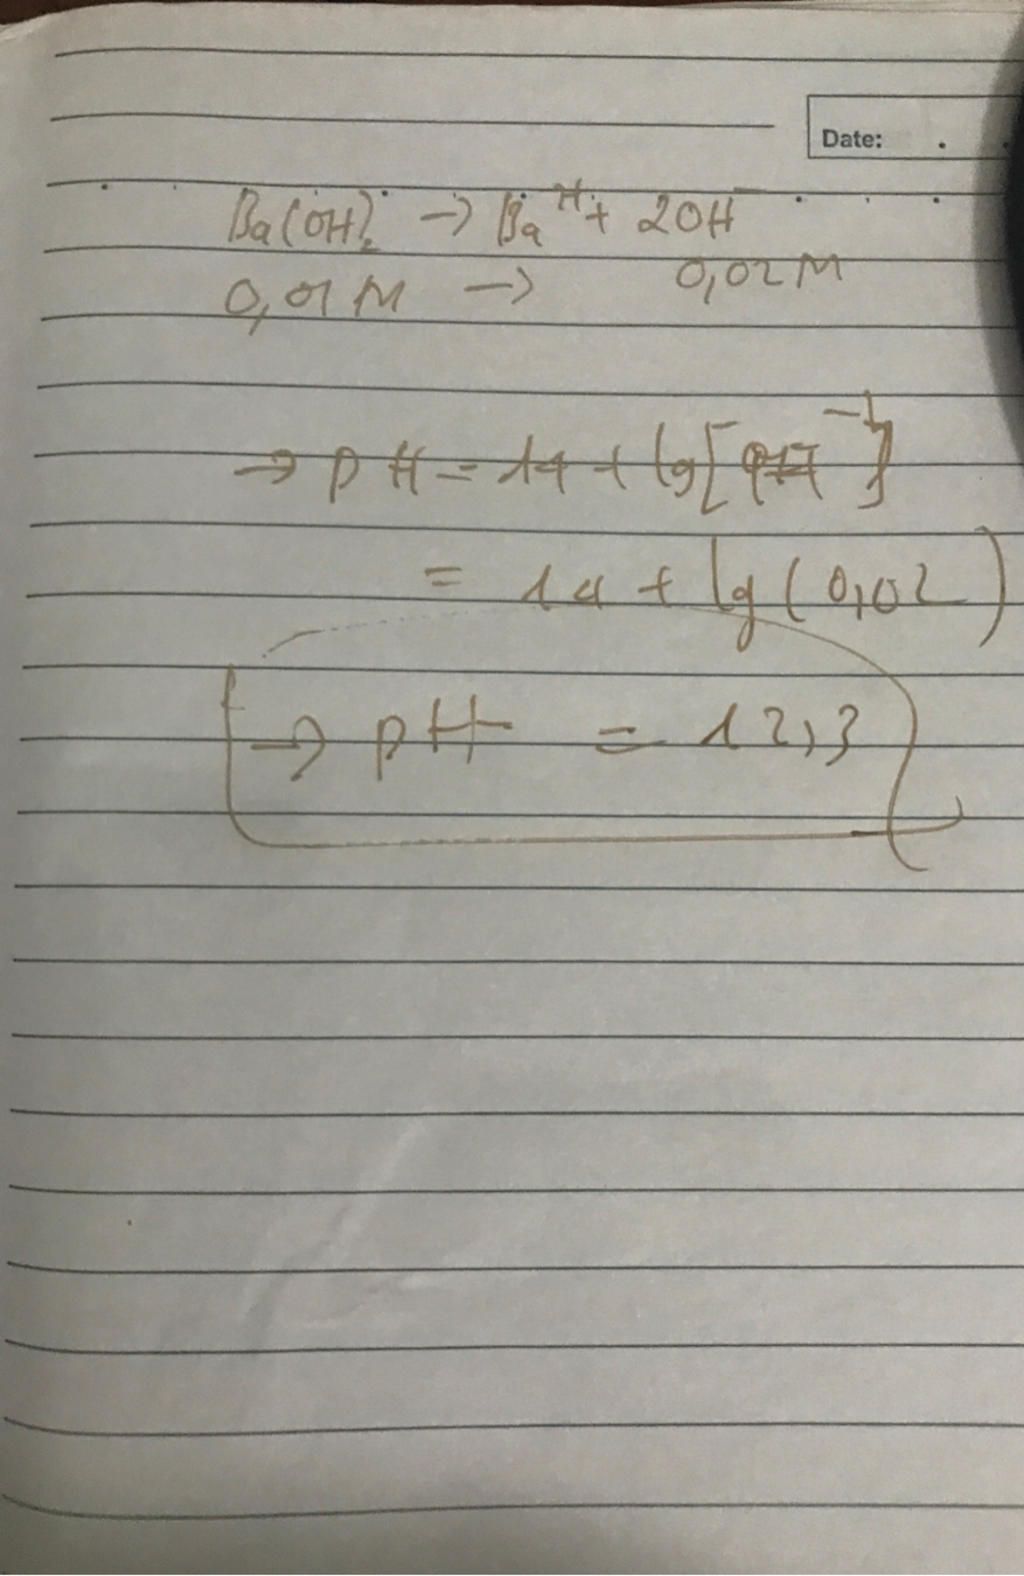 Date:
Ba(OH)₂ → Ba⁺⁺ + 2OH⁻
0,01 M → 0,02 M
→ pH = 14 + lg[OH⁻]
= 14 + lg(0,02)
→ pH = 12,3